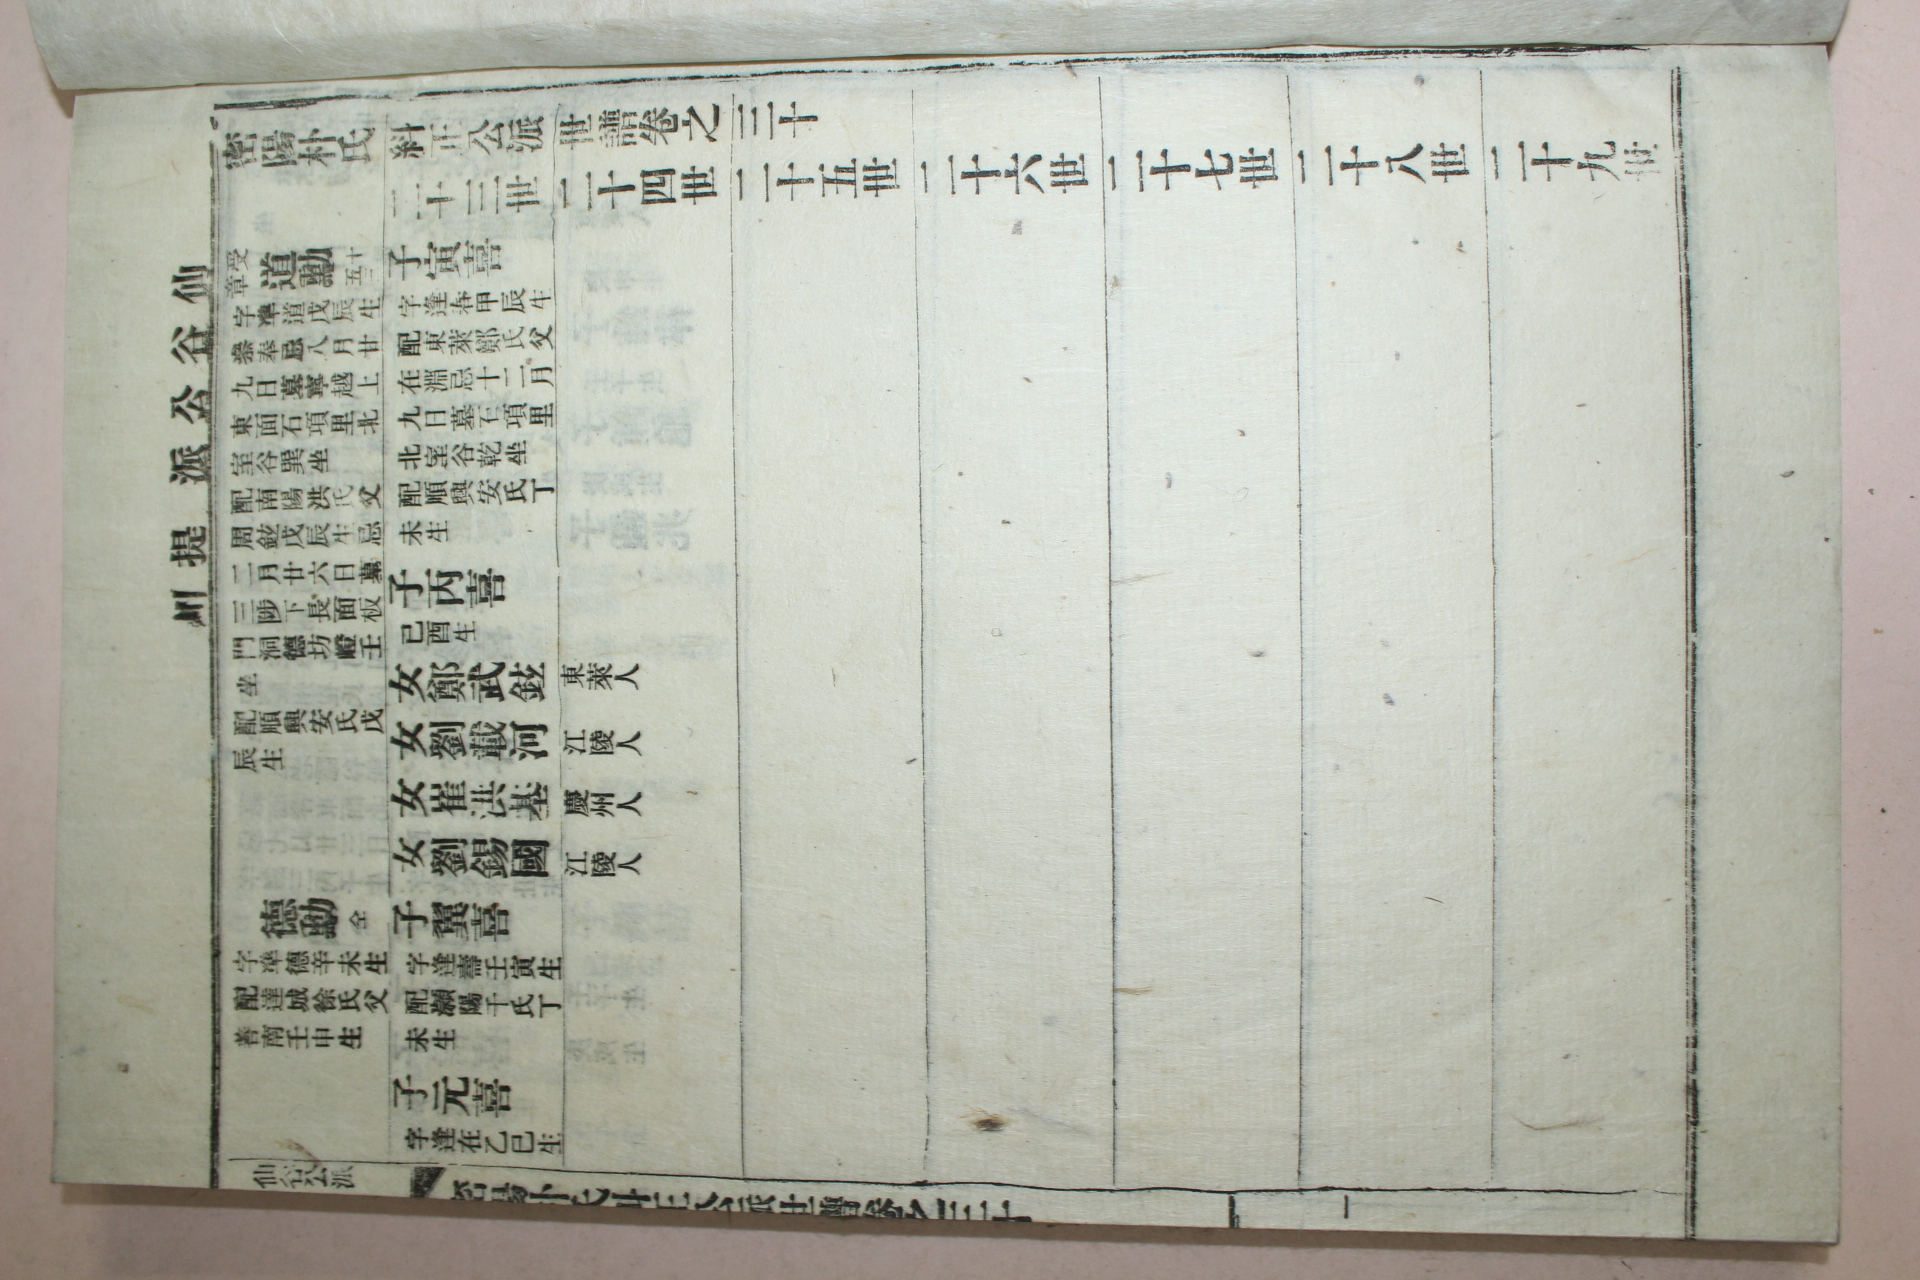 密陽朴氏糾正公派世譜卷之三十
二十三世
二十四世
二十五世
二十六世
二十七世
二十八世
二十九世
仙谷公派
堤川
受章
道勳
十五
字準道戊辰生
參奉忌八月廿
九日墓寧越上
東面石項里北
室谷巽坐
配南陽洪氏父
周鉉戊辰生忌
二月廿六日墓
三陟下長面板
門洞德坊嶝壬
坐
配順興安氏戊
辰生
德勳
仝
字準德辛未生
配達城徐氏父
善南壬申生
子寅喜
字逢春甲辰生
配東萊鄭氏父
在淵忌十二月
九日墓石項里
北室谷乾坐
配順興安氏丁
未生
子丙喜
己酉生
女鄭武鉉
東萊人
女劉載河
江陵人
女崔洪基
慶州人
女劉錫國
江陵人
子翼喜
字逢壽壬寅生
配潁陽千氏丁
未生
子元喜
字逢在乙巳生
仙谷公派
密陽朴氏糾正公派世譜卷之三十